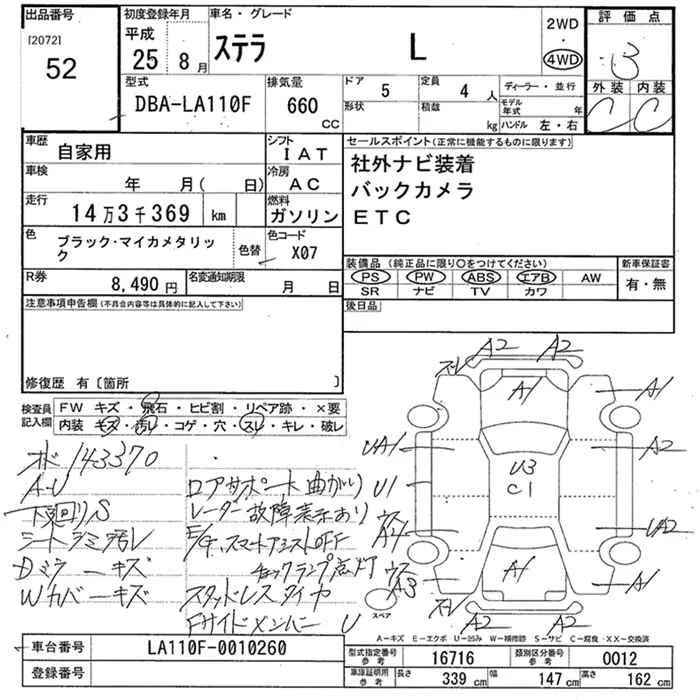 出品番号
[2072]
52
初度登録年月
平成
25 8月
車名・グレード
ステラ L
2WD
・
4WD
評価点
3
外装 内装
C C
型式
DBA-LA110F
排気量
660 CC
ドア 5
形状
定員 4 人
積載 kg
ディーラー・並行
モデル年式 年
ハンドル 左・右
車歴 自家用
シフト IAT
車検 年 月( 日)
冷房 AC
走行 14万3千369 km
燃料 ガソリン
色 ブラック・マイカメタリック
色替
色コード X07
R券 8,490円
名変通知期限 月 日
セールスポイント(正常に機能するものに限ります)
社外ナビ装着
バックカメラ
ETC
装備品(純正品に限り○をつけてください)
PS PW ABS エアB AW
SR ナビ TV カワ
新車保証書
有・無
後日品
注意事項申告欄(不具合内容等は具体的に記入して下さい)
修復歴 有〔箇所 〕
検査員記入欄
FW キズ・飛石・ヒビ割・リペア跡・×要
内装 キズ・汚レ・コゲ・穴・スレ・キレ・破レ
143370
A・U
下廻りS
シートシミ汚レ
Dミラーキズ
Wカバーキズ
ロアサポート曲がり
レーダー故障表示あり
E/G、スマートアシストOFF
チェックランプ点灯
スタッドレスタイヤ
Fサイドメンバー U
A2 A2
スレ
A1
A1
UA1
A2
U3
C1
U1
A4
UA2
A1
A3
A1
スレ
A2 A2
スペア
A-キズ E-エクボ U-凹み W-補修跡 S-サビ C-腐食・XX-交換済
車台番号 LA110F-0010260
登録番号
型式指定番号 参考 16716
類別区分番号 参考 0012
車庫証明用 参考 長さ 339 cm 幅 147 cm 高さ 162 cm